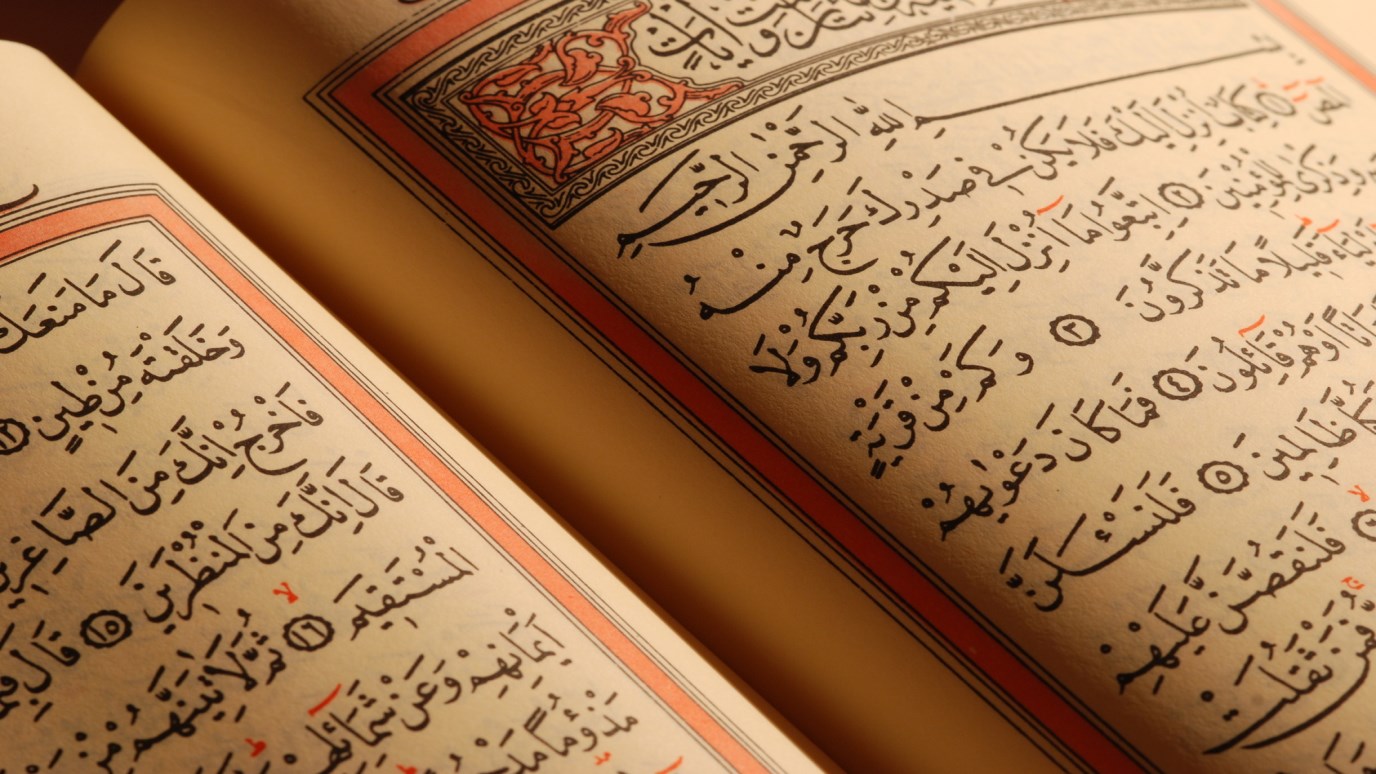 بِسْمِ اللّٰهِ الرَّحْمٰنِ الرَّحِيمِ
الٓمٓصٓ ١ كِتَابٌ اُنْزِلَ اِلَيْكَ فَلَا يَكُنْ فِي صَدْرِكَ حَرَجٌ مِنْهُ
وَذِكْرٰى لِلْمُؤْمِنِينَ ٢ اِتَّبِعُوا مَا اُنْزِلَ اِلَيْكُمْ مِنْ رَبِّكُمْ وَلَا
قَلِيلًا مَا تَذَكَّرُونَ ٣ وَكَمْ مِنْ قَرْيَةٍ
اَوْ هُمْ قَائِلُونَ ٤ فَمَا كَانَ دَعْوٰيهُمْ
ظَالِمِينَ ٥ فَلَنَسْـَٔلَنَّ
فَلَنَقُصَّنَّ عَلَيْهِمْ
فَمَنْ ثَقُلَتْ
قَالَ مَا مَنَعَكَ
وَخَلَقْتَهُ مِنْ طِينٍ ١٢
فَاخْرُجْ اِنَّكَ مِنَ الصَّاغِرِينَ
قَالَ اِنَّكَ مِنَ الْمُنْظَرِينَ ١٥ قَالَ
الْمُسْتَقِيمَ ١٦ ثُمَّ لَاٰتِيَنَّهُمْ مِنْ
اَيْمَانِهِمْ وَعَنْ شَمَائِلِهِمْ
مَذْؤُمًا